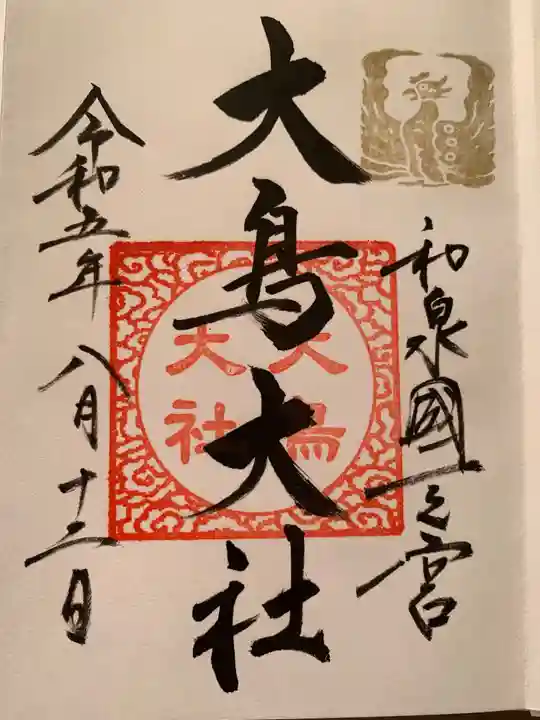 和泉國一之宮
大鳥大社
大鳥
大社
令和五年八月十二日